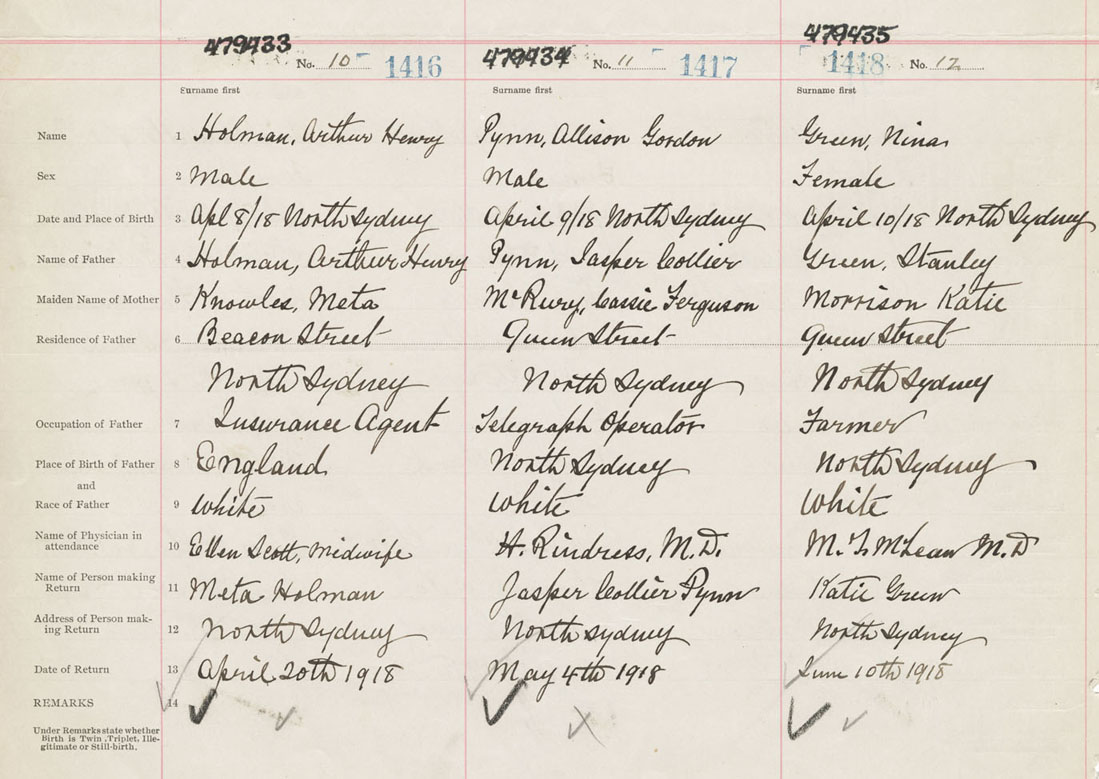 479433 479434 479435
No. 10 1416 No. 11 1417 1418 No. 12
Surname first Surname first Surname first
Name 1 Holman, Arthur Henry Pynn, Allison Gordon Green, Nina
Sex 2 Male Male Female
Date and Place of Birth 3 Apl 8/18 North Sydney April 9/18 North Sydney April 10/18 North Sydney
Name of Father 4 Holman, Arthur Henry Pynn, Jasper Collier Green, Stanley
Maiden Name of Mother 5 Knowles, Meta McRury, Cassie Ferguson Morrison Katie
Residence of Father 6 Beacon Street Queen Street Queen Street
North Sydney North Sydney North Sydney
Occupation of Father 7 Insurance Agent Telegraph Operator Farmer
Place of Birth of Father 8 England North Sydney North Sydney
and
Race of Father 9 White White White
Name of Physician in
attendance 10 Ellen Scott, Midwife H. Rindress, M.D. M. McLean M.D
Name of Person making
Return 11 Meta Holman Jasper Collier Pynn Katie Green
Address of Person mak-
ing Return 12 North Sydney North Sydney North Sydney
Date of Return 13 April 20th 1918 May 4th 1918 June 10th 1918
REMARKS 14
Under Remarks state whether
Birth is Twin, Triplet, Ille-
gitimate or Still-birth.